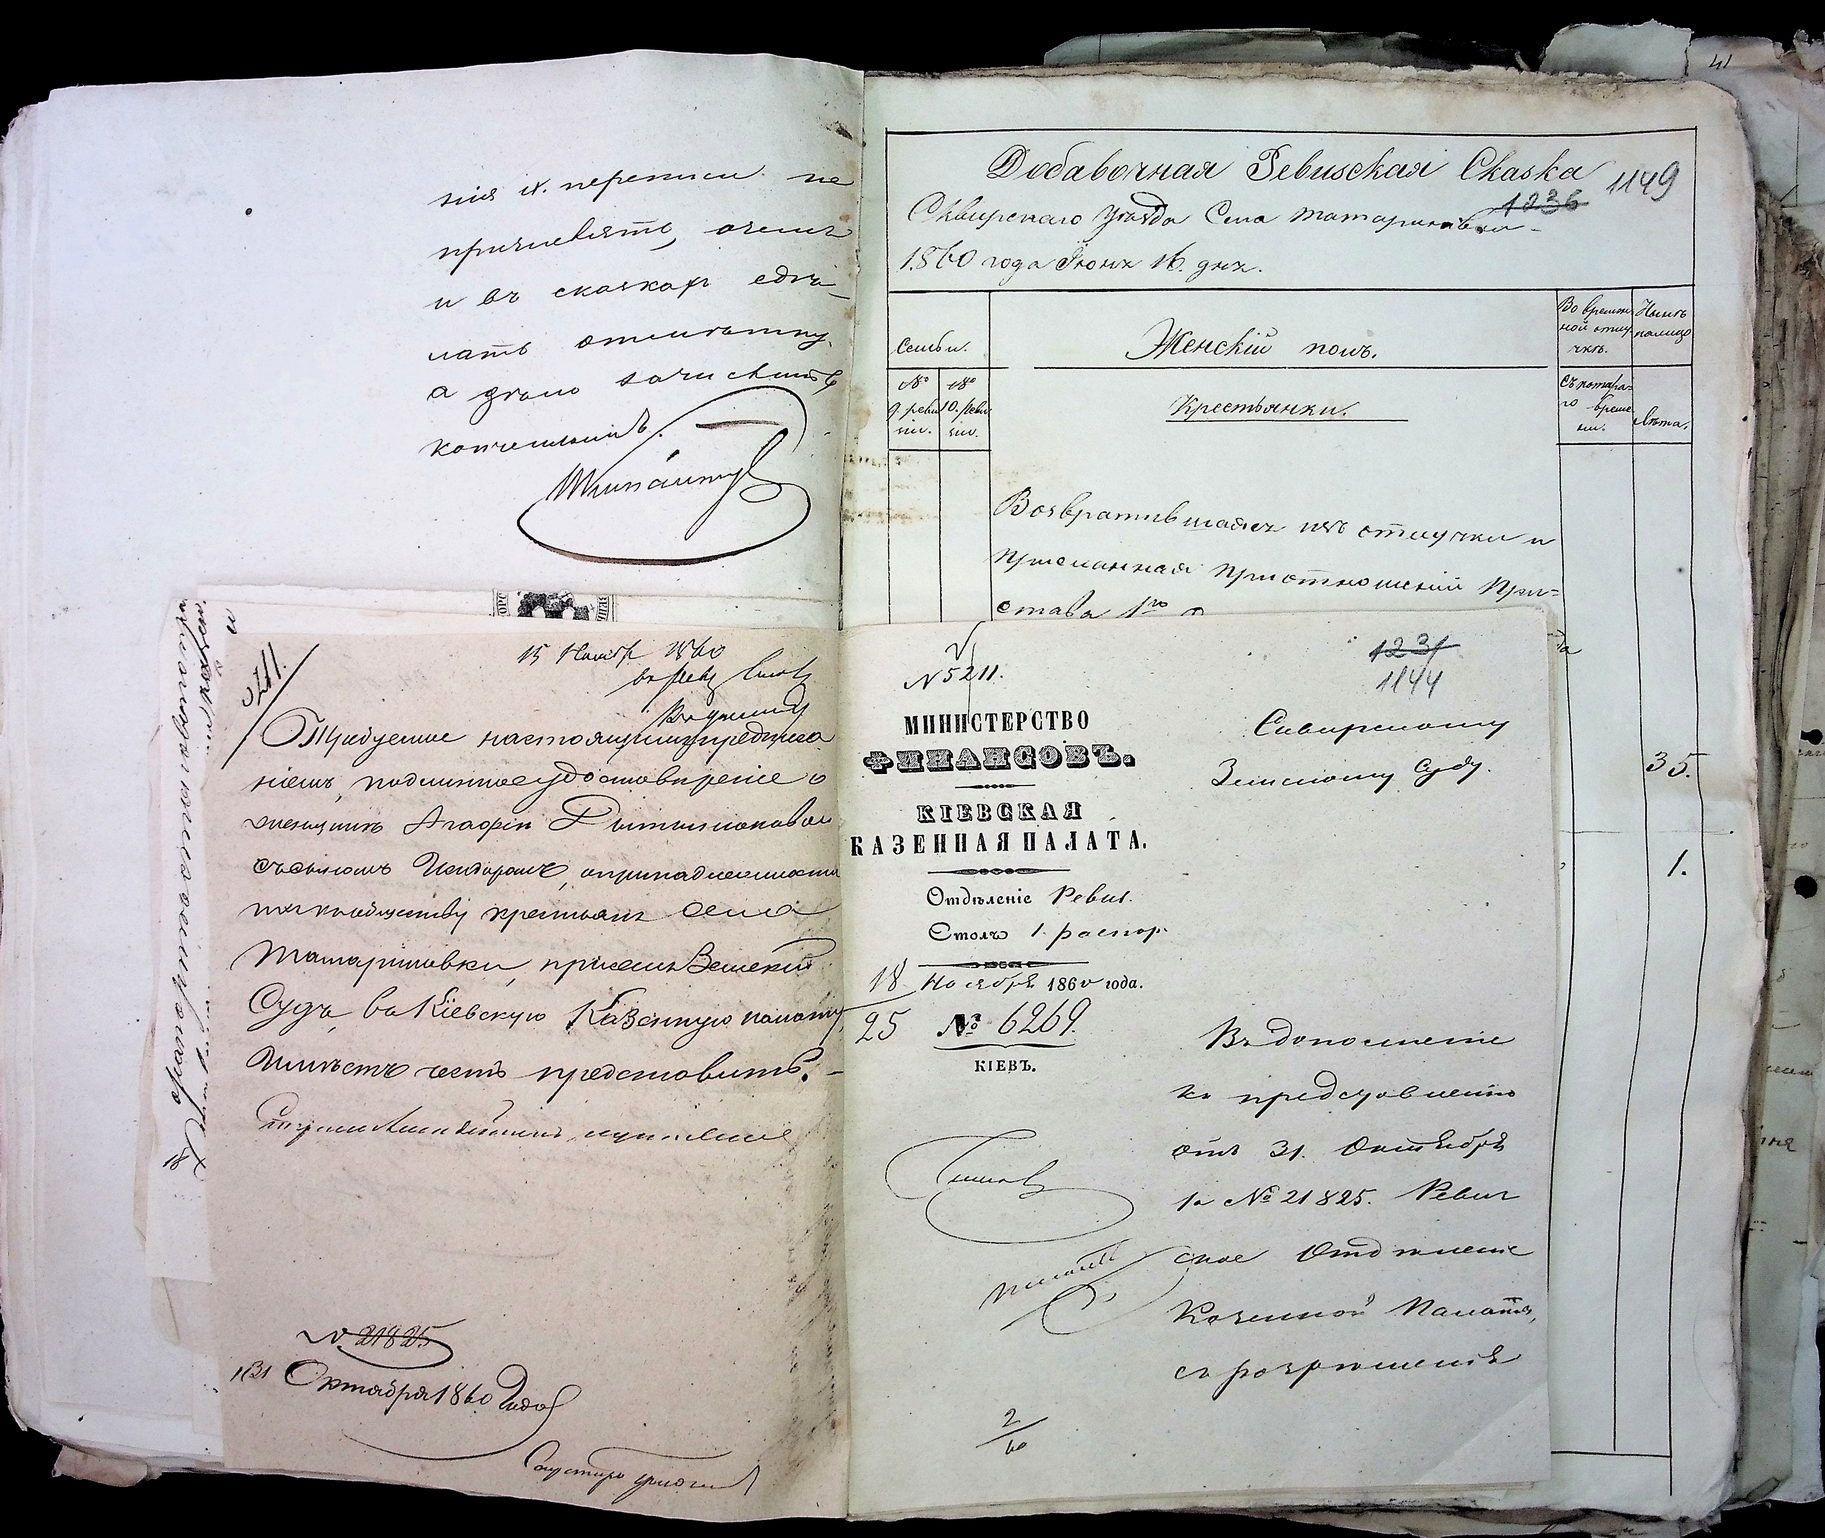 нiя ix. переписи не
причислять, а
и въ сказкахъ сдѣ-
лать отмѣтку,
а дѣло зачислить
конченнымъ.
Добавочная Ревизская Сказка
1149
1236
Сквирскаго уѣзда Села Татариновки
1860 года Iюня 16. дня.
Семьи.
Женскiй полъ.
Во времен-
ной отлу-
чкѣ.
Нынѣ
налицо
№
9. реви
зiи.
№
10. реви
зiи.
Крестьянки.
Съ котора-
го време-
ни.
Лѣта.
Возвратившаяся изъ отлучки и
присланная при отношенiи При-
става 1го
35.
1.
5211.
15 Ноября 1860
Требуемое настоящимъ предписа
нiемъ, подлинное удостовѣренiе о
Агафiи
съ сыномъ о принадлежности
къ обществу крестьянъ села
Татариновки, Земскiй
Судъ, въ Кiевскую Казенную палату
имѣетъ честь представить.
№ 21825
31 Октября 1860 Года
№ 5211.
1231
1144
МИНИСТЕРСТВО
ФИНАНСОВЪ.
КIЕВСКАЯ
КАЗЕННАЯ ПАЛАТА.
Отдѣленiе Ревиз.
Столъ 1. распор.
18 Ноября 1860 года.
25 № 6269.
КIЕВЪ.
Сквирскому
Земскому Суду.
Въ дополненiе
къ представленiю
отъ 31. Октября
за № 21825. Ревиз
ское Отдѣленiе
Казенной Палаты,
съ разрѣшенiя
2
60